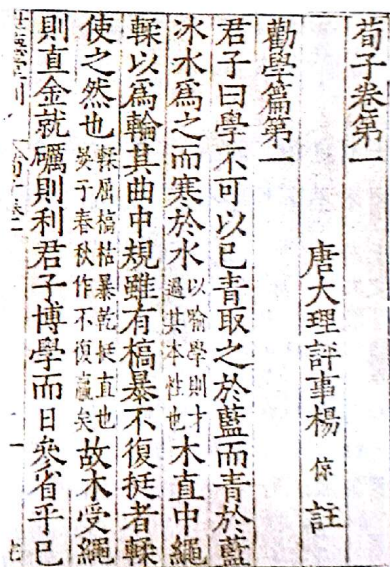 荀子卷第一
唐大理評事楊倞註
勸學篇第一
君子曰學不可以已青取之於藍而青於藍
冰水爲之而寒於水以喻學則才過其本性也木直中繩
輮以爲輪其曲中規雖有槁暴不復挺者輮
使之然也輮屈槁枯暴乾挺直也晏子春秋作不復贏矣故木受繩
則直金就礪則利君子博學而日參省乎己